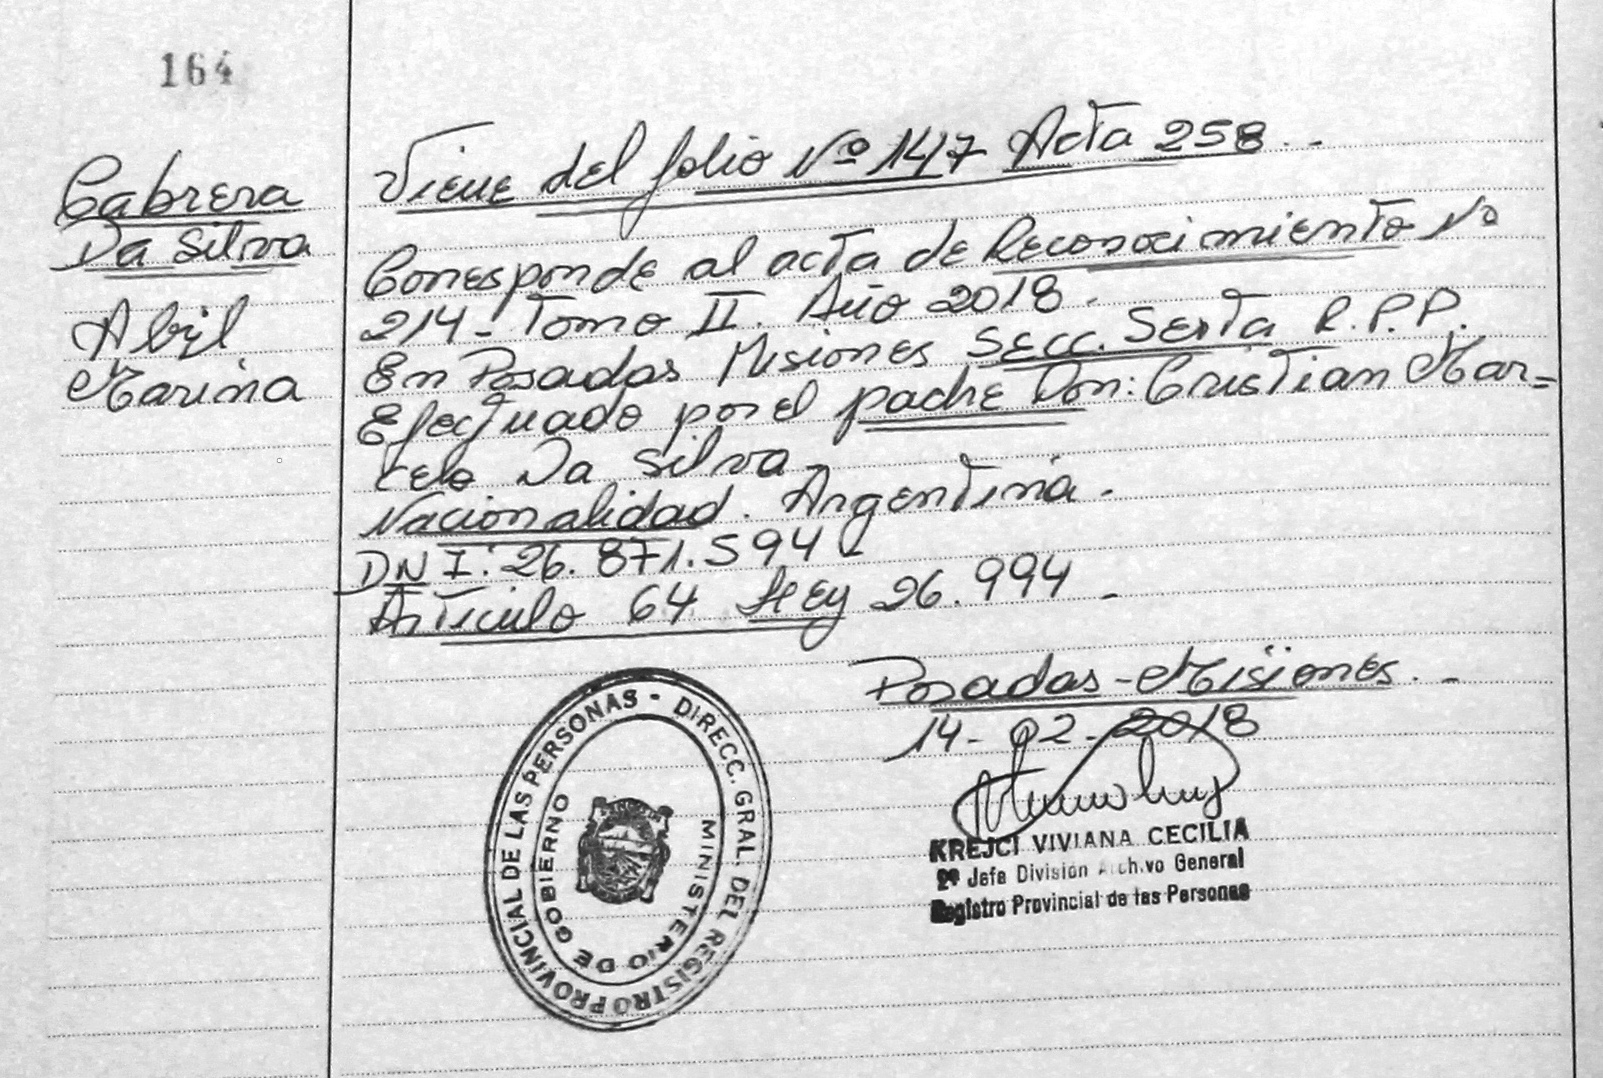 164
Cabrera
Da Silva
Abril
Marina
Viene del folio Nº 147 Acta 258.-
Corresponde al acta de Reconocimiento Nº
214- Tomo II. Año 2018.
En Posadas Misiones Secc. Sexta R.P.P.
Efectuado por el padre Don: Cristian Mar=
celo Da Silva
Nacionalidad. Argentina.
DNI: 26.871.594
Artículo 64 Ley 26.994.
Posadas-Misiones.-
14-02-2018
KREJCI VIVIANA CECILIA
2º Jefe División Archivo General
Registro Provincial de las Personas
DIRECC. GRAL. DEL REGISTRO PROVINCIAL DE LAS PERSONAS -
MINISTERIO DE GOBIERNO